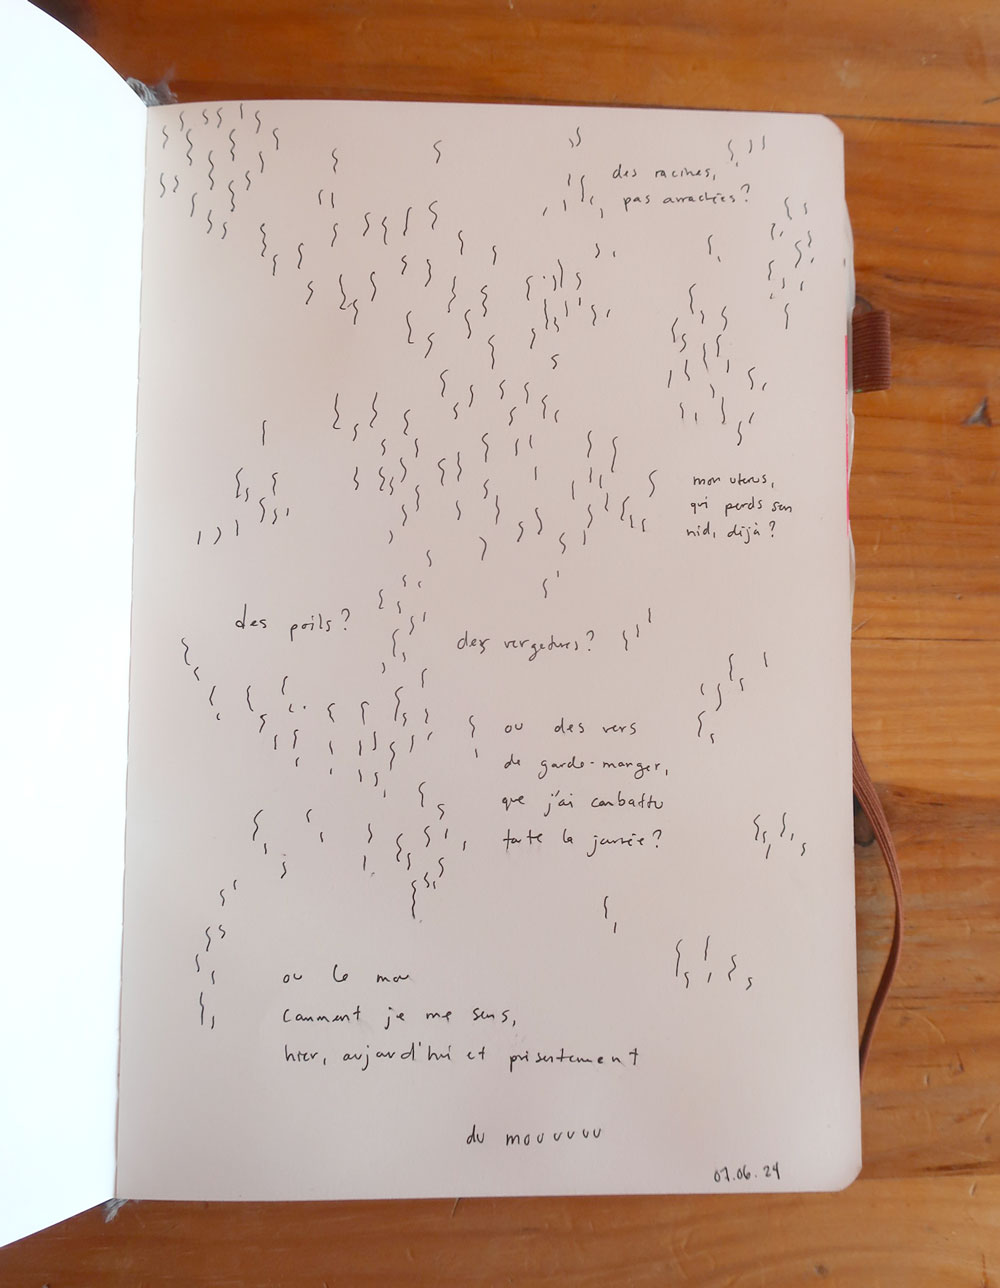 des racines,
pas arrachées?
mon uterus,
qui perds son
nid, déjà?
des poils?
des vergetures?
ou des vers
de garde-manger,
que j'ai combattu
toute la journée?
ou le mou
comment je me sens,
hier, aujourd'hui et présentement
du mouuuuu
07.06.24